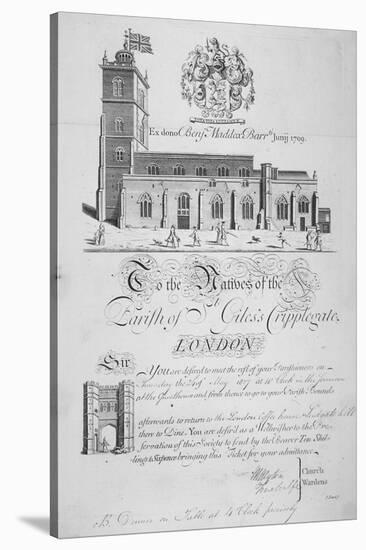 Ex dono Benj. Maddox Barrt. Junij 1709.
To the Natives of the
Parish of St Giles's Cripplegate,
LONDON
Sir
You are desired to meet the rest of your Parishioners on
Thursday the of May at 10 Clock in the forenoon
at the and from thence to go to your Parish Bounds
afterwards to return to the London Coffee house Ludgate hill
there to Dine. You are desir'd as a Wellwisher to the Pre-
servation of this Society to send by the Bearer Ten Shil-
lings & Sixpence bringing this Ticket for your admittance
Church
Wardens
Dinner on Table at 4 Clock precisely